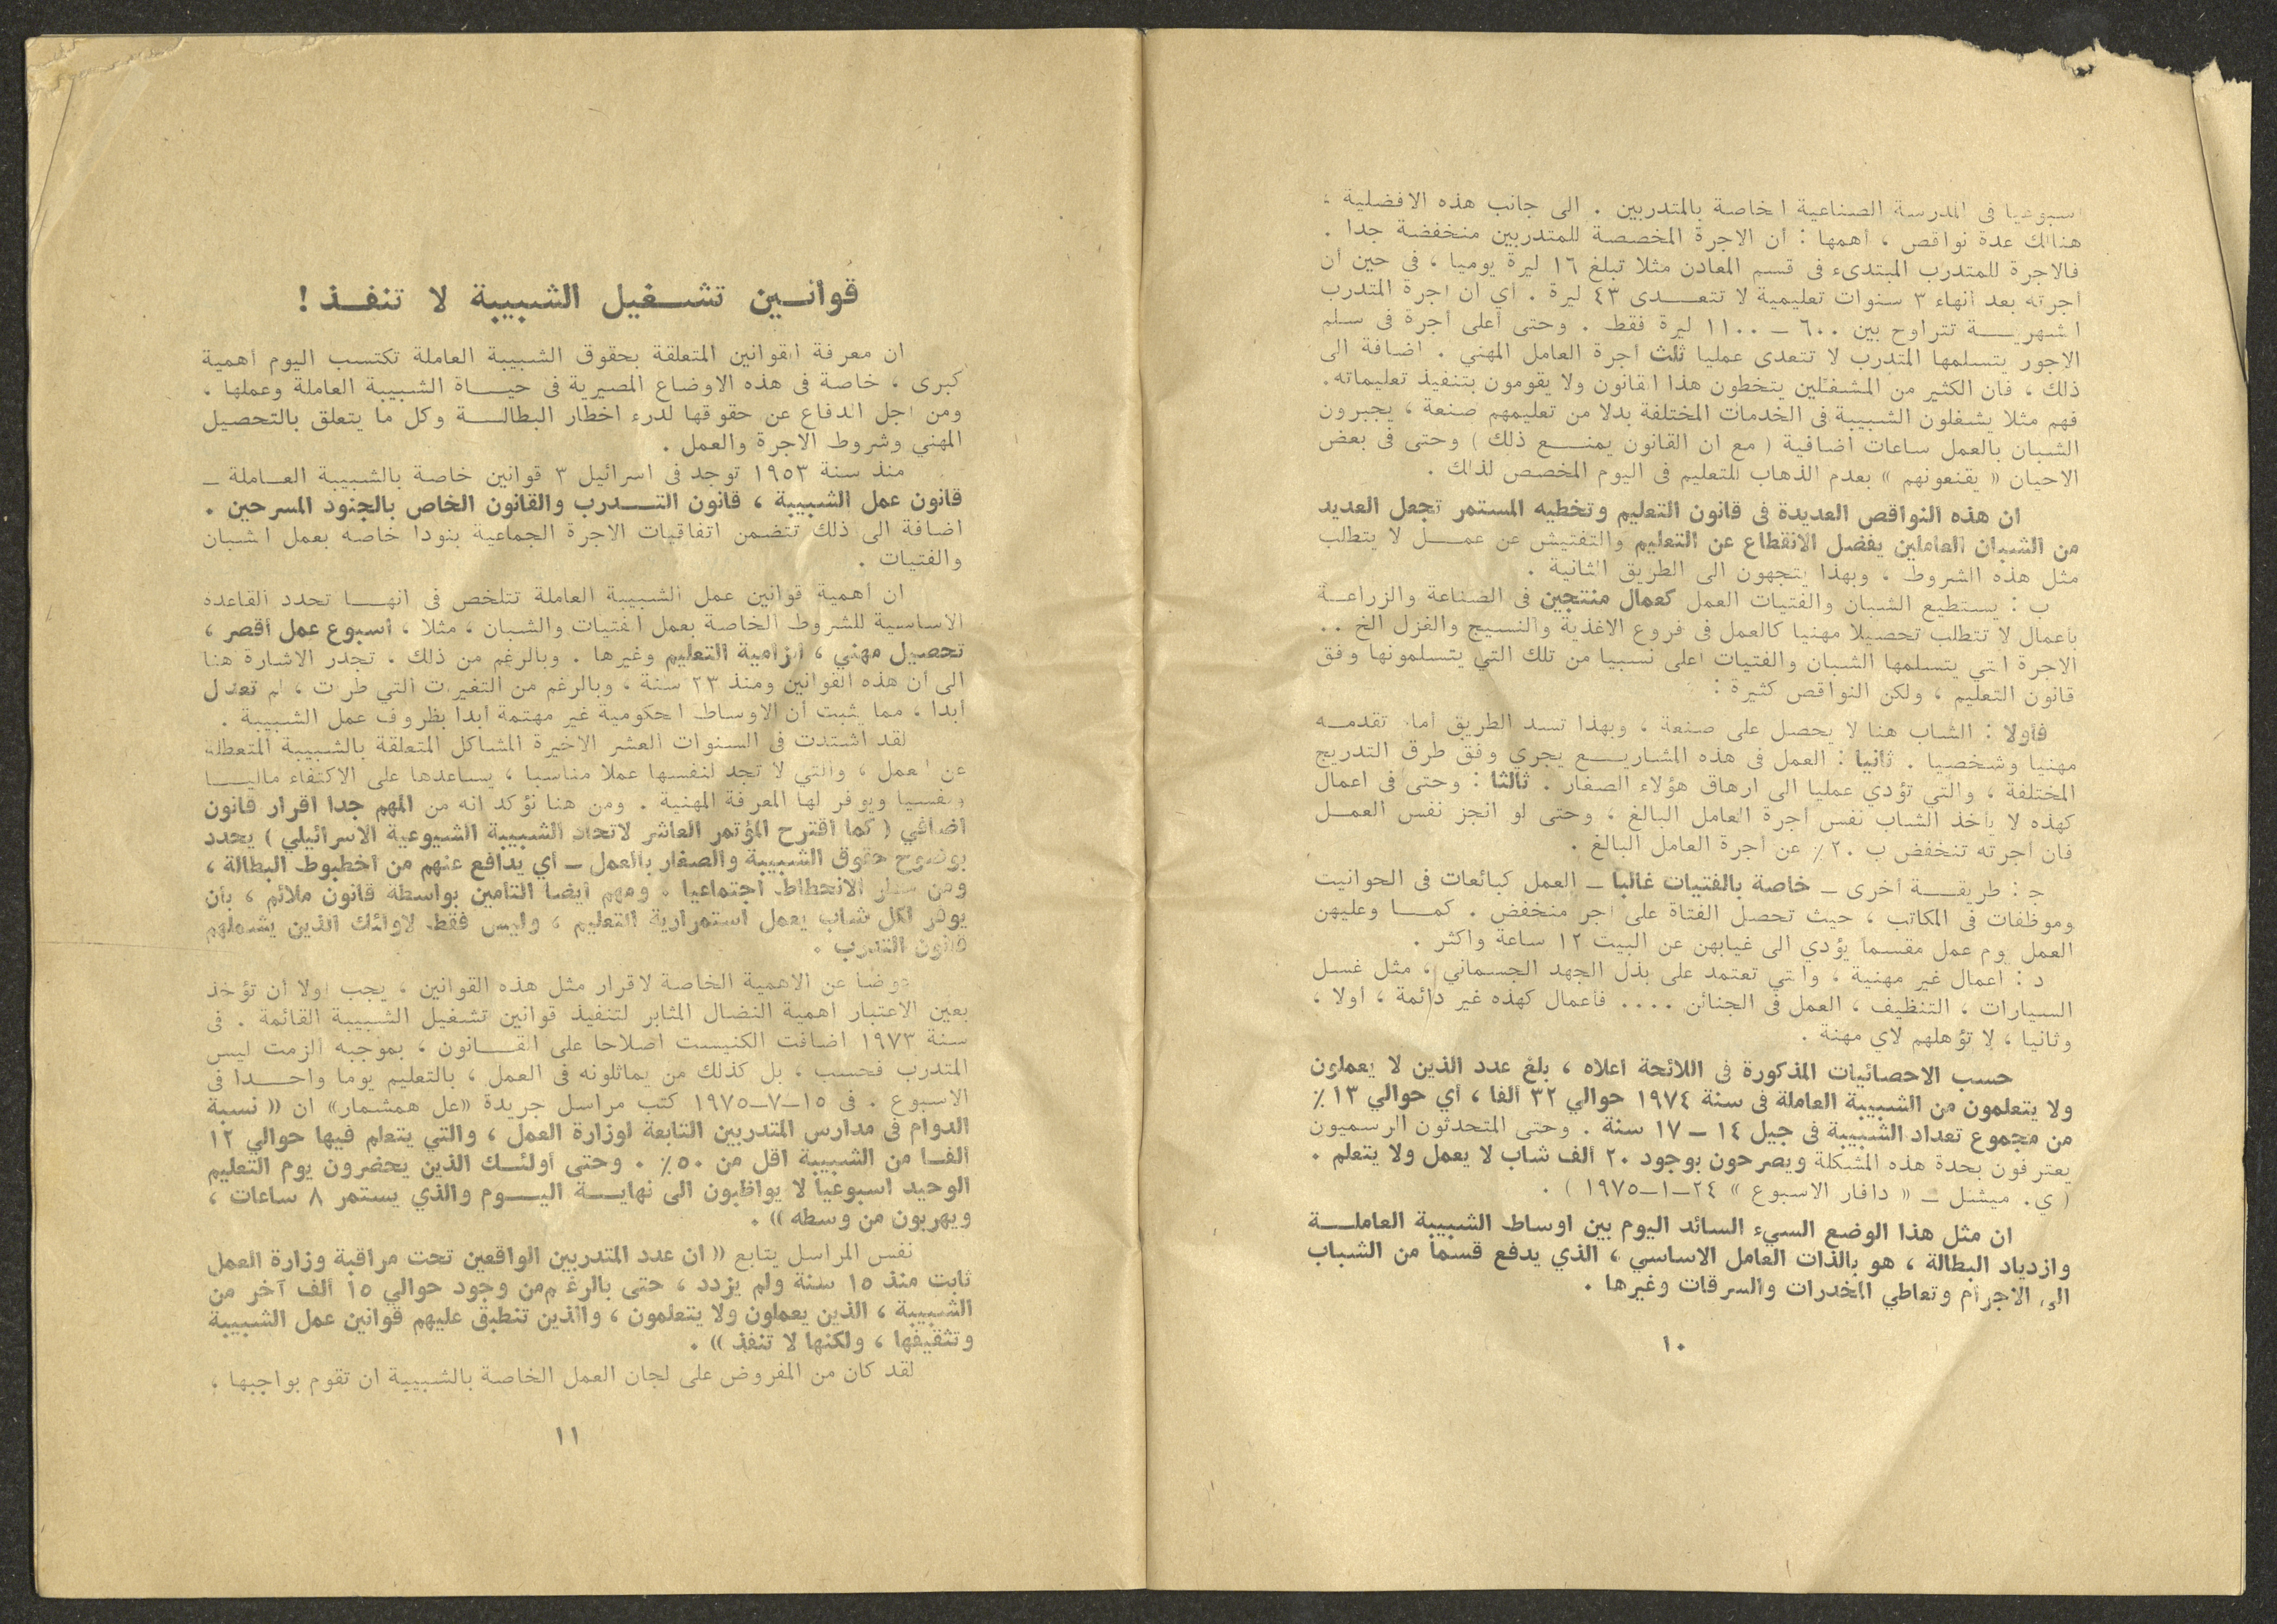 اسبوعيا فى المدرسة الصناعية الخاصة بالمتدربين . الى جانب هذه الافضلية ،
هنالك عدة نواقص ، أهمها : أن الاجرة المخصصة للمتدربين منخفضة جدا .
فالاجرة للمتدرب المبتدىء فى قسم المعادن مثلا تبلغ ١٦ ليرة يوميا ، فى حين أن
أجرته بعد انهاء ٣ سنوات تعليمية لا تتعـــدى ٤٣ ليرة . أي ان اجرة المتدرب
الشهريـــة تتراوح بين ٦٠٠ ــ ١١٠٠ ليرة فقط . وحتى أعلى أجرة فى سلم
الاجور يتسلمها المتدرب لا تتعدى عمليا ثلث أجرة العامل المهني . اضافة الى
ذلك ، فان الكثير من المشغلين يتخطون هذا القانون ولا يقومون بتنفيذ تعليماته.
فهم مثلا يشغلون الشبيبة فى الخدمات المختلفة بدلا من تعليمهم صنعة ، يجبرون
الشبان بالعمل ساعات اضافية ( مع ان القانون يمنـــع ذلك ) وحتى فى بعض
الاحيان « يقنعونهم » بعدم الذهاب للتعليم فى اليوم المخصص لذلك .
ان هذه النواقص العديدة فى قانون التعليم وتخطيه المستمر تجعل العديد
من الشبان العاملين يفضل الانقطاع عن التعليم والتفتيش عن عمـــل لا يتطلب
مثل هذه الشروط . وبهذا يتجهون الى الطريق الثانية .
ب : يستطيع الشبان والفتيات العمل كعمال منتجين فى الصناعة والزراعـة
بأعمال لا تتطلب تحصيلا مهنيا كالعمل فى فروع الاغذية والنسيج والغزل الخ ..
الاجرة التي يتسلمها الشبان والفتيات أعلى نسبيا من تلك التي يتسلمونها وفق
قانون التعليم ، ولكن النواقص كثيرة :
فأولا : الشاب هنا لا يحصل على صنعة ، وبهذا تسد الطريق أمام تقدمـه
مهنيا وشخصيا . ثانيا : العمل فى هذه المشاريـــع يجري وفق طرق التدريج
المختلفة ، والتي تؤدي عمليا الى ارهاق هؤلاء الصغار . ثالثا : وحتى فى اعمال
كهذه لا يأخذ الشاب نفس أجرة العامل البالغ ، وحتى لو انجز نفس العمـــل
فان أجرته تنخفض ب ٢٠٪ عن أجرة العامل البالغ .
جـ : طريقـــة أخرى ــ خاصة بالفتيات غالبا ــ العمل كبائعات فى الحوانيت
وموظفات فى المكاتب ، حيث تحصل الفتاة على اجر منخفض . كمـــا وعليهن
العمل يوم عمل مقسما يؤدي الى غيابهن عن البيت ١٢ ساعة واكثر .
د : اعمال غير مهنية ، والتي تعتمد على بذل الجهد الجسماني ، مثل غسل
السيارات ، التنظيف ، العمل فى الجنائن .... فأعمال كهذه غير دائمة ، أولا ،
وثانيا ، لا تؤهلهم لاي مهنة .
حسب الاحصائيات المذكورة فى اللائحة اعلاه ، بلغ عدد الذين لا يعملون
ولا يتعلمون من الشبيبة العاملة فى سنة ١٩٧٤ حوالي ٣٢ ألفا ، أي حوالي ١٣٪
من مجموع تعداد الشبيبة فى جيل ١٤ ــ ١٧ سنة . وحتى المتحدثون الرسميون
يعترفون بحدة هذه المشكلة ويصرحون بوجود ٢٠ ألف شاب لا يعمل ولا يتعلم .
( ي. ميشل ــ « دافار الاسبوع » ٢٤ـ١ـ١٩٧٥ ) .
ان مثل هذا الوضع السيء السائد اليوم بين اوساط الشبيبة العاملـــة
وازدياد البطالة ، هو بالذات العامل الاساسي ، الذي يدفع قسما من الشباب
الى الاجرام وتعاطي المخدرات والسرقات وغيرها .
١٠
قوانـين تشـغيل الشبيبة لا تنفـذ !
ان معرفة القوانين المتعلقة بحقوق الشبيبة العاملة تكتسب اليوم أهمية
كبرى ، خاصة فى هذه الاوضاع المصيرية فى حيـــاة الشبيبة العاملة وعملها .
ومن اجل الدفاع عن حقوقها لدرء اخطار البطالـــة وكل ما يتعلق بالتحصيل
المهني وشروط الاجرة والعمل .
منذ سنة ١٩٥٣ توجد فى اسرائيل ٣ قوانين خاصة بالشبيبة العـاملة ــ
قانون عمل الشبيبة ، قانون التـــدرب والقانون الخاص بالجنود المسرحين .
اضافة الى ذلك تتضمن اتفاقيات الاجرة الجماعية بنودا خاصه بعمل الشبان
والفتيات .
ان أهمية قوانين عمل الشبيبة العاملة تتلخص فى انهـــا تحدد القاعده
الاساسية للشروط الخاصة بعمل الفتيات والشبان ، مثلا ، أسبوع عمل أقصر ،
تحصيل مهني ، الزامية التعليم وغيرها . وبالرغم من ذلك . تجدر الاشارة هنا
الى أن هذه القوانين ومنذ ٢٣ سنة ، وبالرغم من التغيرات التي طرات ، لم تعدل
أبدا ، مما يثبت أن الاوساط الحكومية غير مهتمة ابدا بظروف عمل الشبيبة .
لقد اشتدت فى السنوات العشر الاخيرة المشاكل المتعلقة بالشبيبة المتعطلة
عن العمل ، والتي لا تجد لنفسها عملا مناسبا ، يساعدها على الاكتفاء ماليـــا
ونفسيا ويوفر لها المعرفة المهنية . ومن هنا نؤكد انه من المهم جدا اقرار قانون
اضافي ( كما اقترح المؤتمر العاشر لاتحاد الشبيبة الشيوعية الاسرائيلي ) يحدد
بوضوح حقوق الشبيبة والصغار بالعمل ــ أي يدافع عنهم من أخطبوط البطالة ،
ومن خطر الانحطاط اجتماعيا . ومهم أيضا التأمين بواسطة قانون ملائم ، بأن
يوفر لكل شاب يعمل استمرارية التعليم ، وليس فقط لاولئك الذين يشملهم
قانون التدرب .
عوضا عن الاهمية الخاصة لاقرار مثل هذه القوانين ، يجب اولا أن تؤخذ
بعين الاعتبار أهمية النضال المثابر لتنفيذ قوانين تشغيل الشبيبة القائمة . فى
سنة ١٩٧٣ اضافت الكنيست اصلاحا على القـــانون ، بموجبه الزمت ليس
المتدرب فحسب ، بل كذلك من يماثلونه فى العمل ، بالتعليم يوما واحـــدا فى
الاسبوع . فى ١٥ـ٧ـ١٩٧٥ كتب مراسل جريدة «عل همشمار» ان « نسبة
الدوام فى مدارس المتدربين التابعة لوزارة العمل ، والتي يتعلم فيها حوالي ١٢
ألفـا من الشبيبة اقل من ٥٠٪ . وحتى أولئـك الذين يحضرون يوم التعليم
الوحيد اسبوعيا لا يواظبون الى نهايـــة اليـــوم والذي يستمر ٨ ساعات ،
ويهربون من وسطه » .
نفس المراسل يتابع « ان عدد المتدربين الواقعين تحت مراقبة وزارة العمل
ثابت منذ ١٥ سنة ولم يزدد ، حتى بالرغ ممن وجود حوالي ١٥ ألف آخر من
الشبيبة ، الذين يعملون ولا يتعلمون ، والذين تنطبق عليهم قوانين عمل الشبيبة
وتثقيفها ، ولكنها لا تنفذ » .
لقد كان من المفروض على لجان العمل الخاصة بالشبيبة ان تقوم بواجبها ،
١١